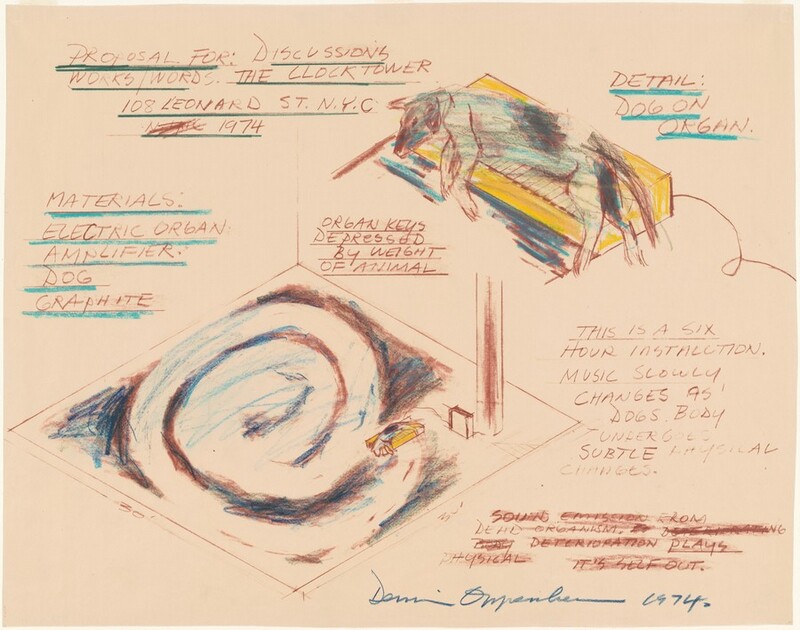 PROPOSAL FOR: DISCUSSIONS
WORKS/WORDS. THE CLOCKTOWER
108 LEONARD ST. N.Y.C
1974
DETAIL:
DOG ON
ORGAN.
MATERIALS:
ELECTRIC ORGAN
AMPLIFIER:
DOG
GRAPHITE
ORGAN KEYS
DEPRESSED
BY WEIGHT
OF ANIMAL
THIS IS A SIX
HOUR INSTALLTION.
MUSIC SLOWLY
CHANGES AS
DOGS BODY
UNDERGOES
SUBTLE PHYSICAL
CHANGES.
30'
SOUND EMISSION FROM
DEAD ORGANISM,
BODY DETERIORATION PLAYS
PHYSICAL IT'S SELF OUT.
Dennis Oppenheim 1974.